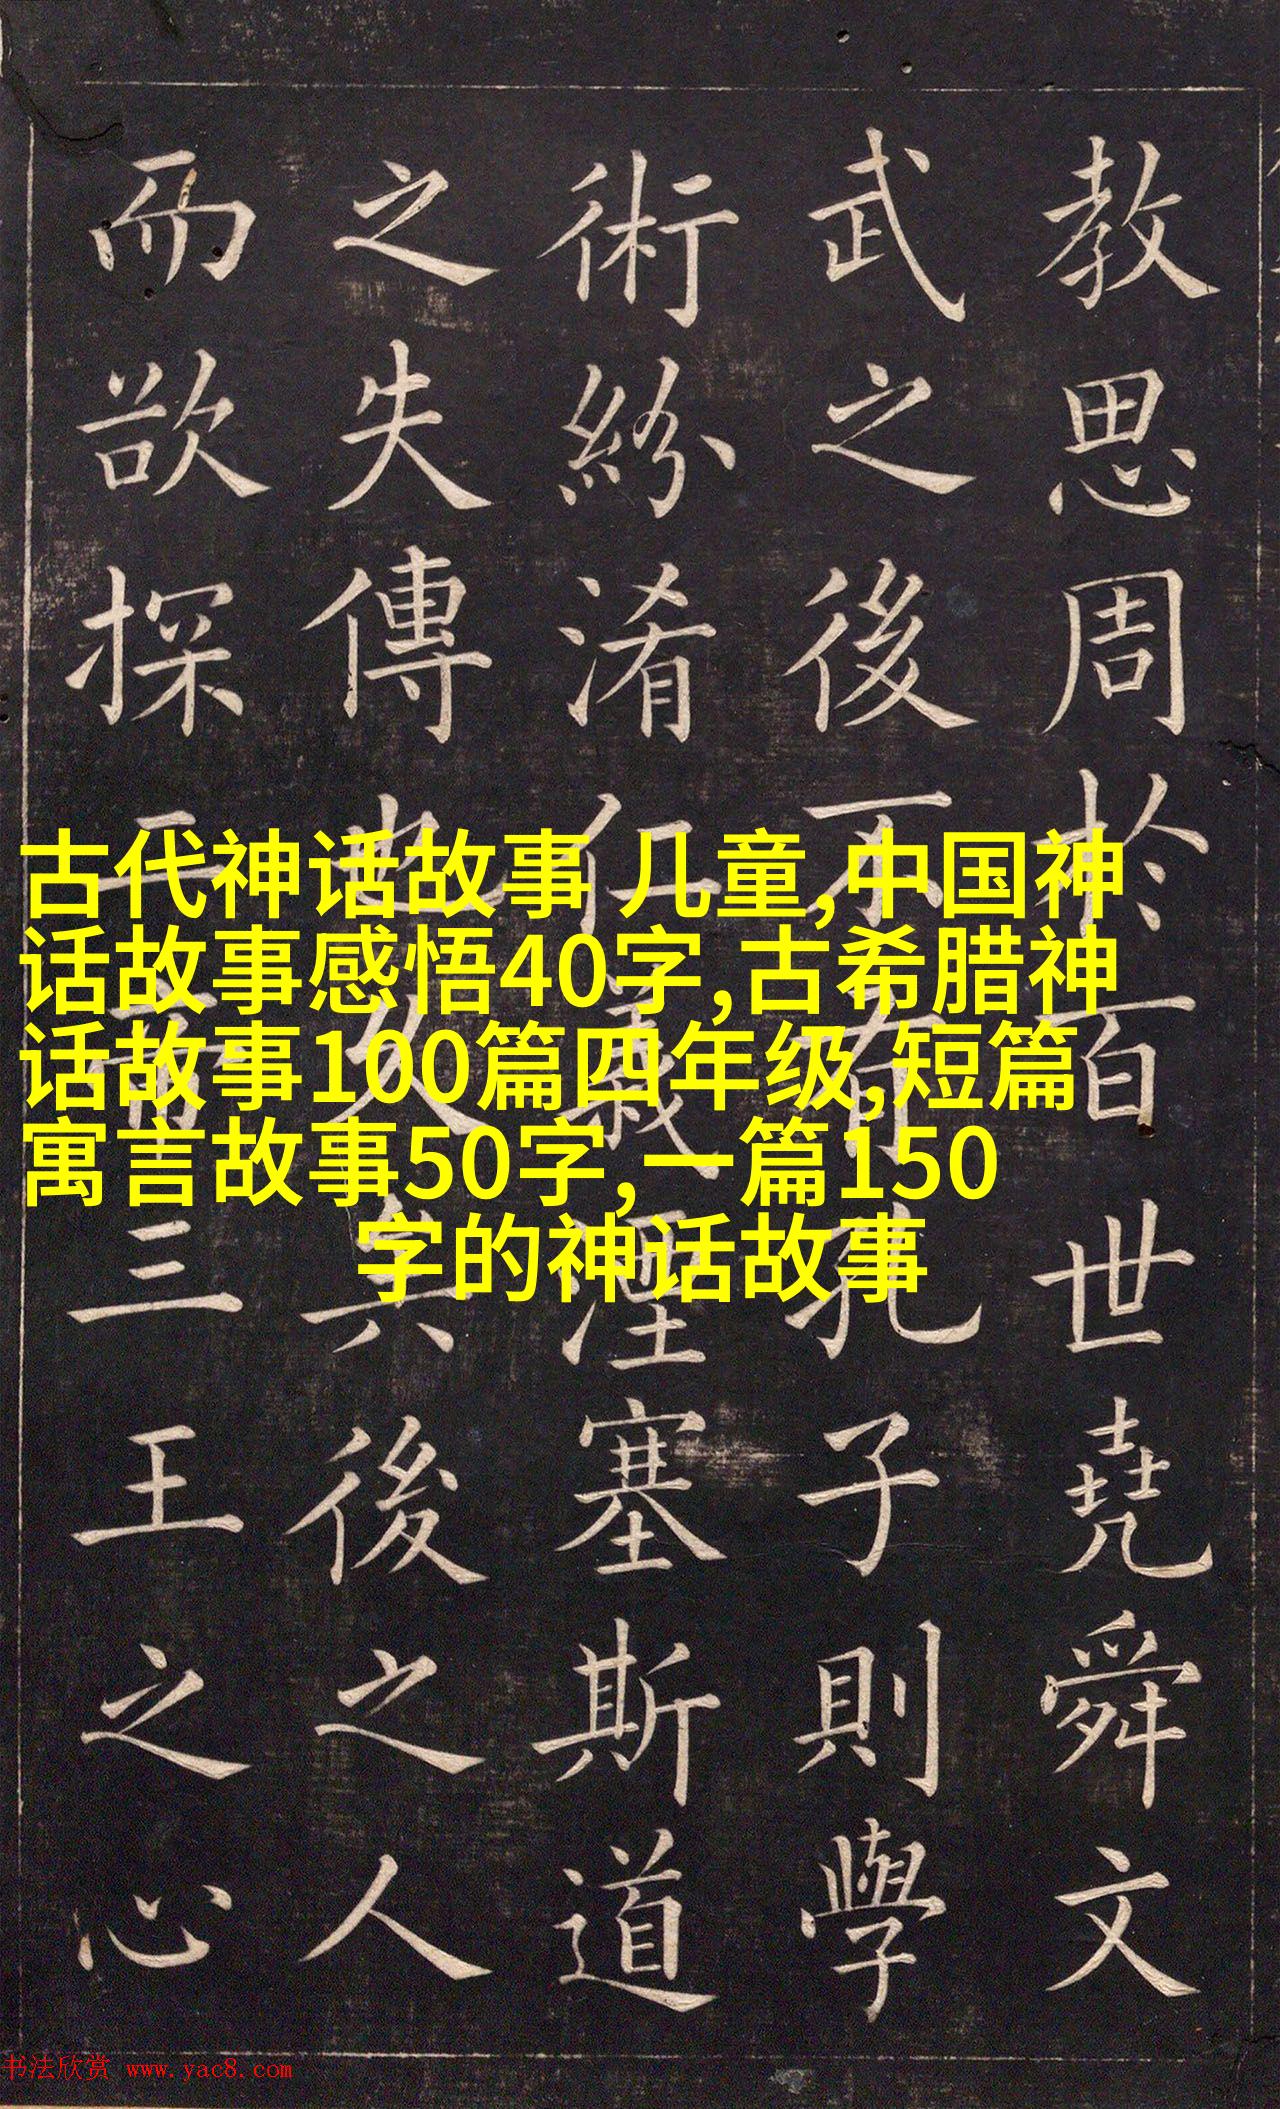 教思周於百世堯舜文
武之後不有孔子則學
術紛淆仁義湮塞斯道
之失傳也久矣後之人
而欲探二帝三王之心
古代神话故事 儿童,中国神
话故事感悟40字,古希腊神
话故事100篇四年级,短篇
寓言故事50字,一篇150
字的神话故事
书法欣赏 www.yac8.com